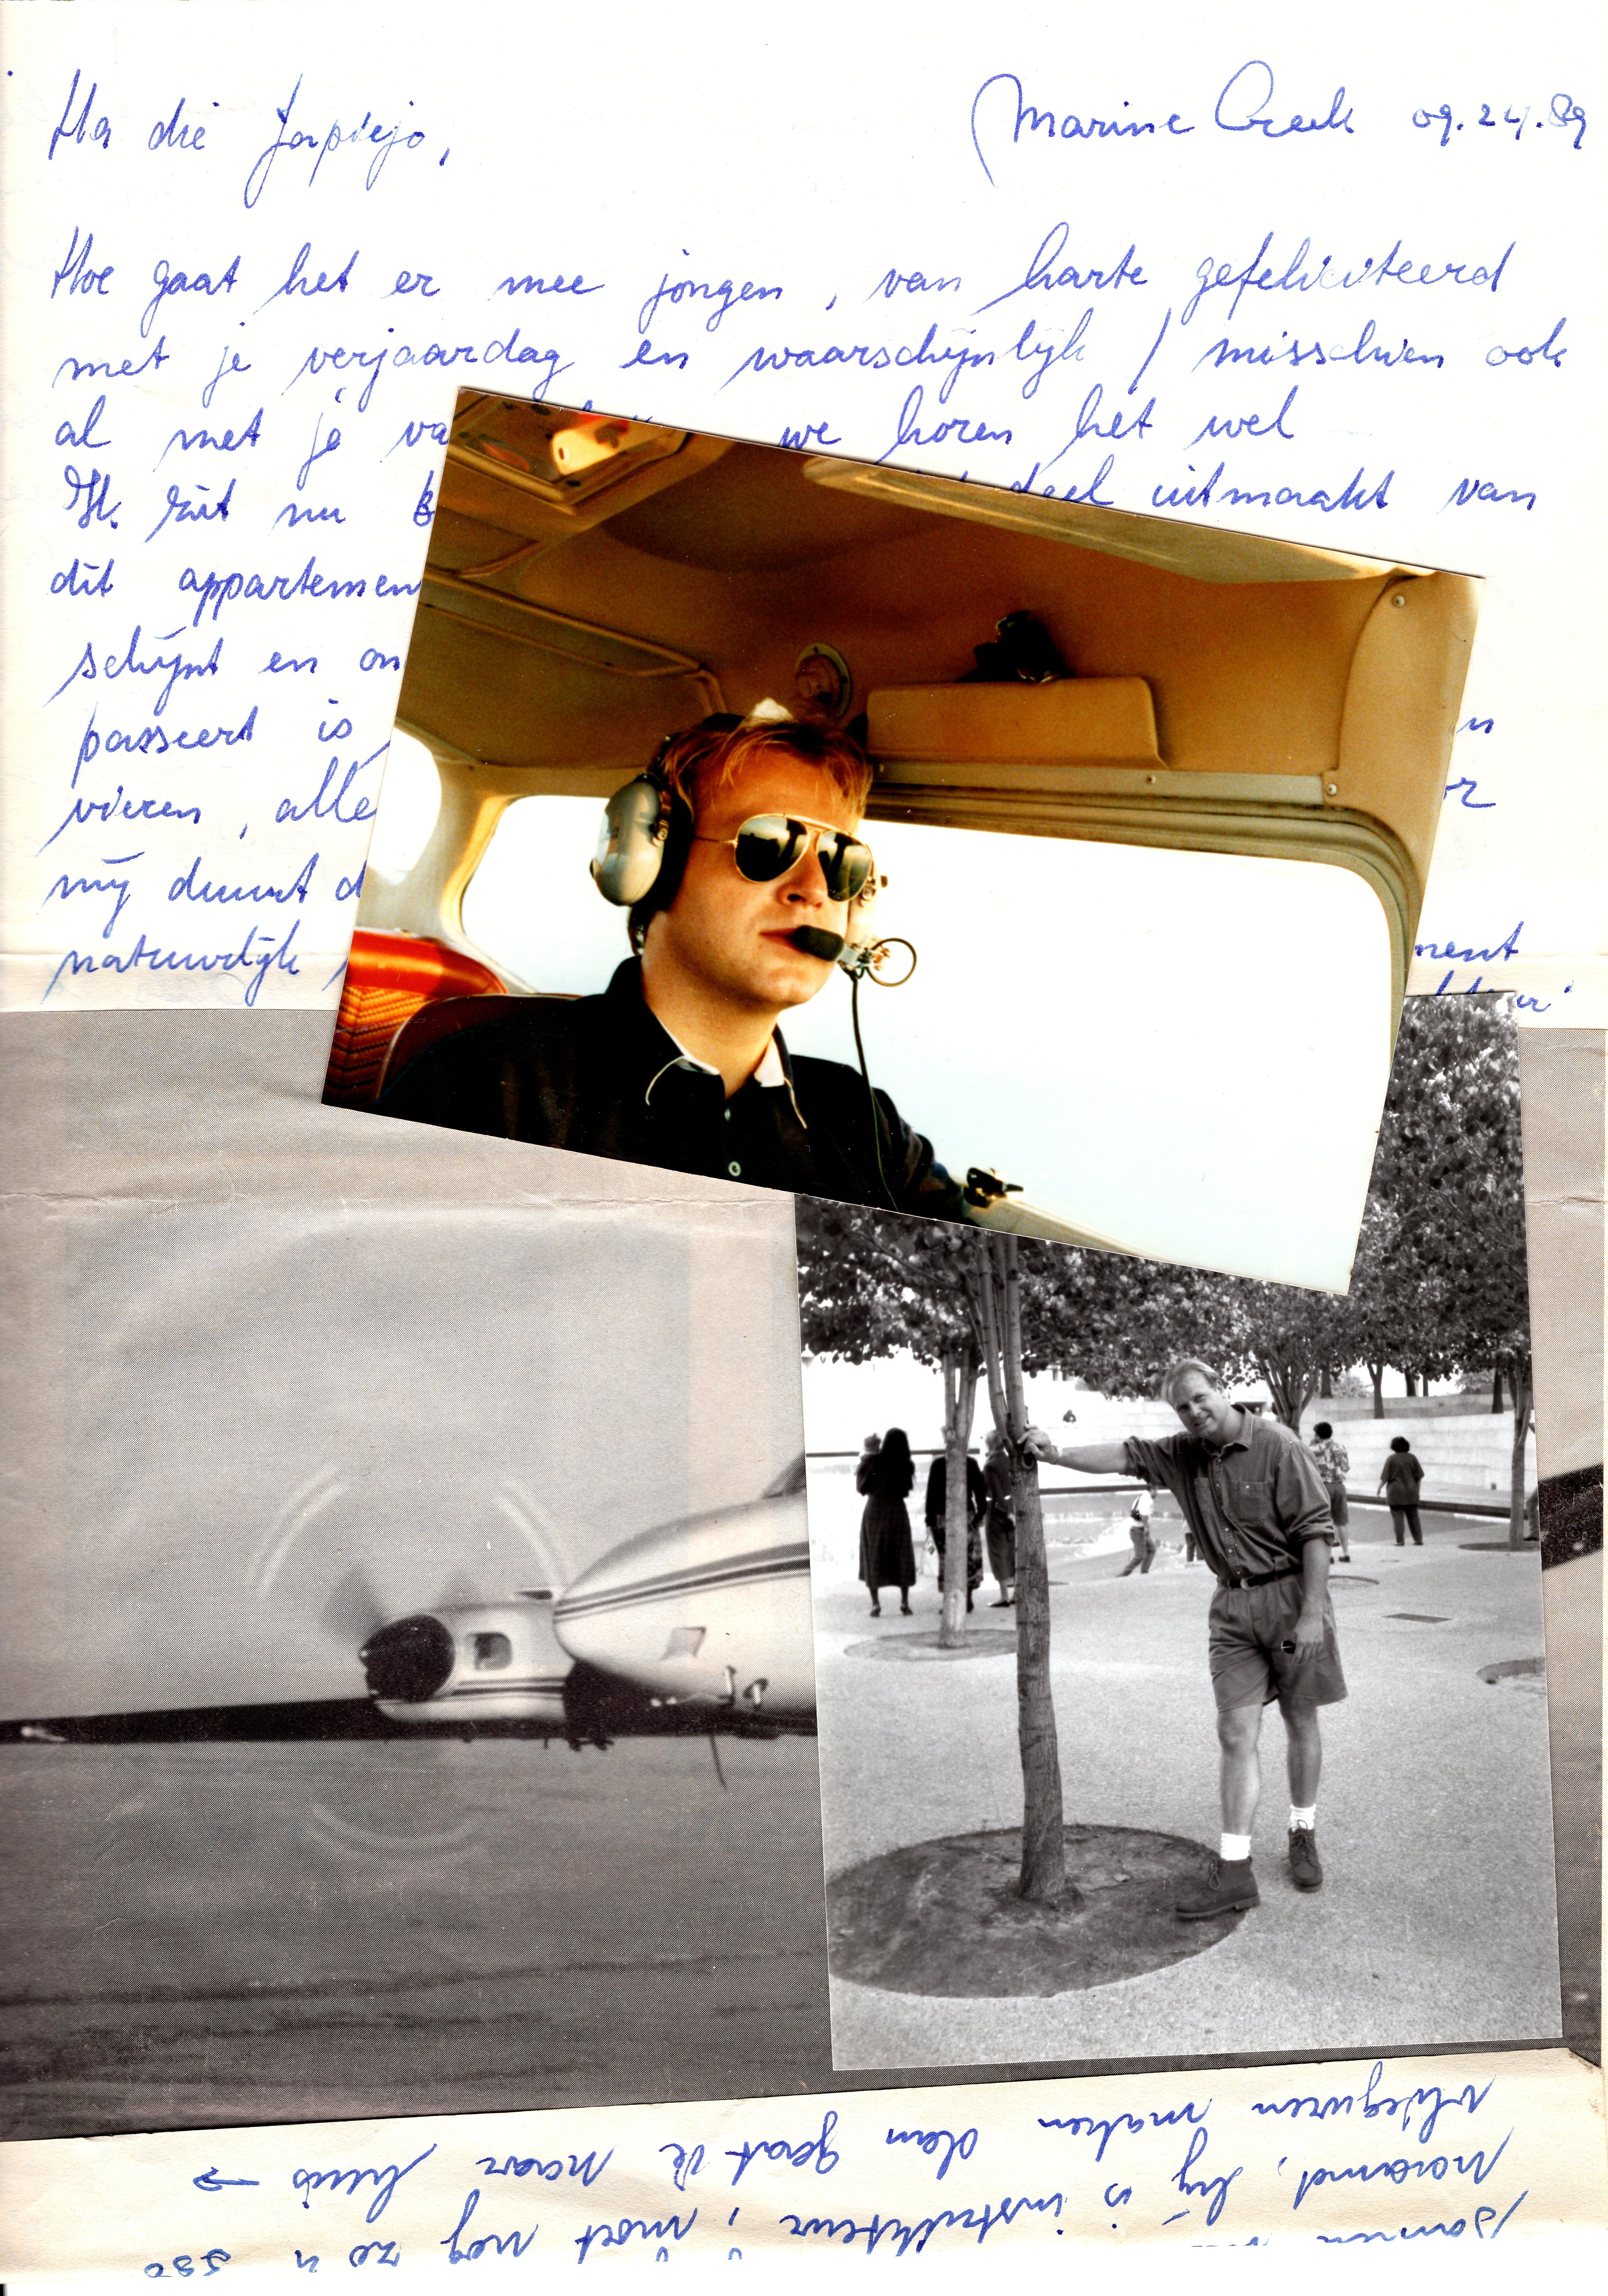 Ha die Japiejo,
Marine Creek 09.24.89
Hoe gaat het er mee jongen, van harte gefeliciteerd
met je verjaardag en waarschijnlijk / misschien ook
al met je va we horen het wel
Ik zit nu deel uitmaakt van
dit appartemen
schijnt en on
passeert is,
vieren, alle or
mij duurt d
natuurlijk ment
samen
naramd, hij is instrukteur, moet nog zo'n 350
vlieguren maken dan gaat ie naar huis →